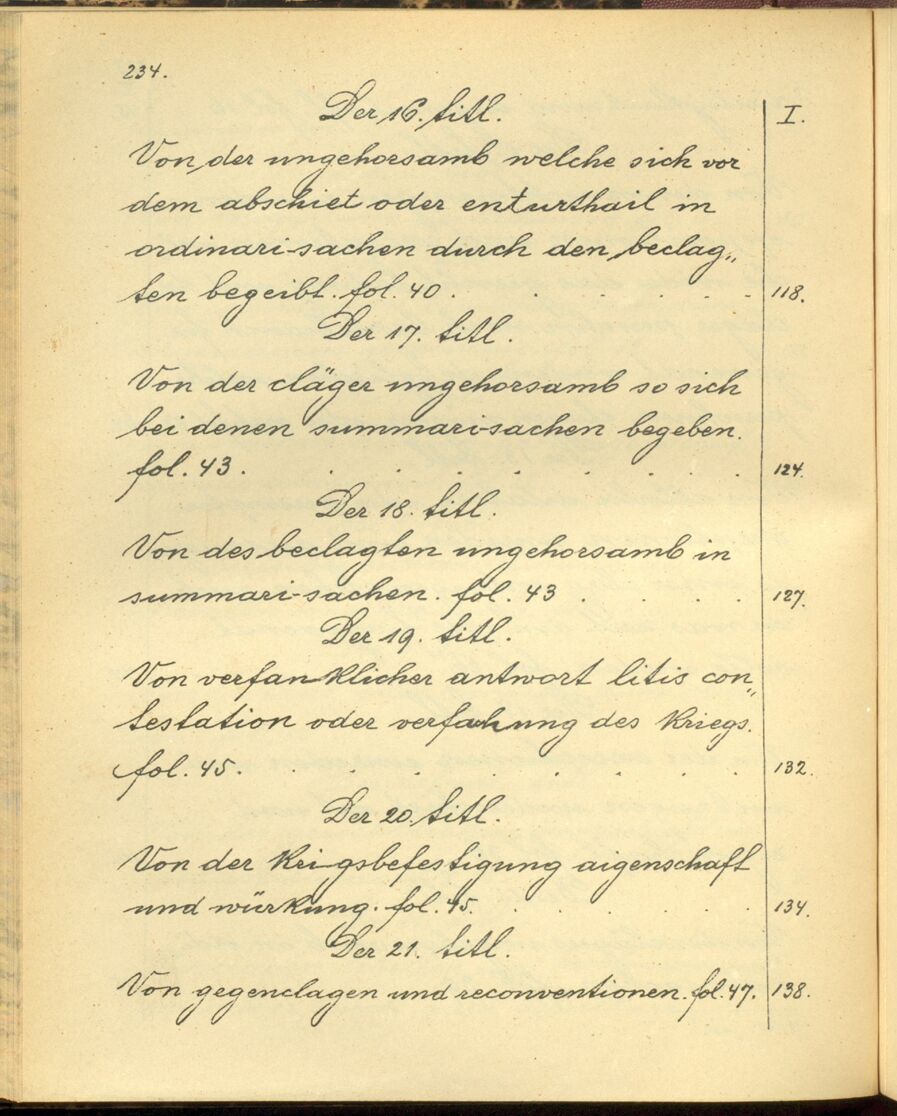 234.
Der 16. titl.
I.
Von der ungehorsamb welche sich vor
dem abschiet oder enturthail in
ordinari-sachen durch den beclag„
ten begeibt. fol. 40 . . . . . . . 118.
Der 17. titl.
Von der cläger ungehorsamb so sich
bei denen summari-sachen begeben.
fol. 43 . . . . . . . . . 124.
Der 18. titl.
Von des beclagten ungehorsamb in
summari-sachen. fol. 43 . . . . 127.
Der 19. titl.
Von verfanklicher antwort litis con„
testation oder verfahung des Kriegs.
fol. 45. . . . . . . . . 132.
Der 20. titl.
Von der Krigsbefestigung aigenschaft
und würkung. fol. 45. . . . . . 134.
Der 21. titl.
Von gegenclagen und reconventionen. fol. 47. 138.